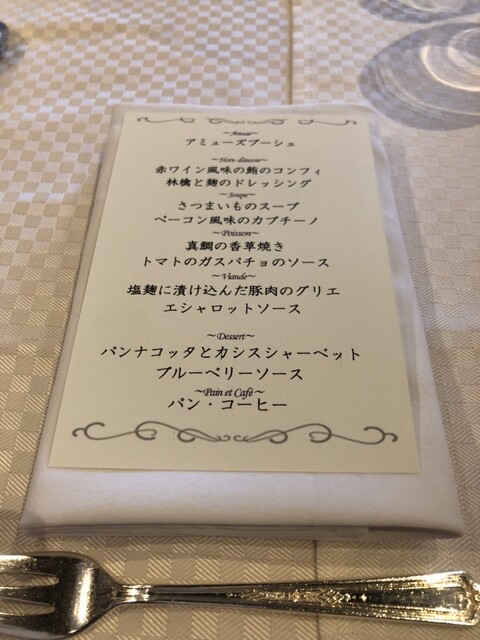 ~Amuse~
アミューズブーシュ
~Hors-d'œuvre~
赤ワイン風味の鮪のコンフィ
林檎と麹のドレッシング
~Soupe~
さつまいものスープ
ベーコン風味のカプチーノ
~Poisson~
真鯛の香草焼き
トマトのガスパチョのソース
~Viande~
塩麹に漬け込んだ豚肉のグリエ
エシャロットソース
~Dessert~
パンナコッタとカシスシャーベット
ブルーベリーソース
~Pain et Café~
パン・コーヒー